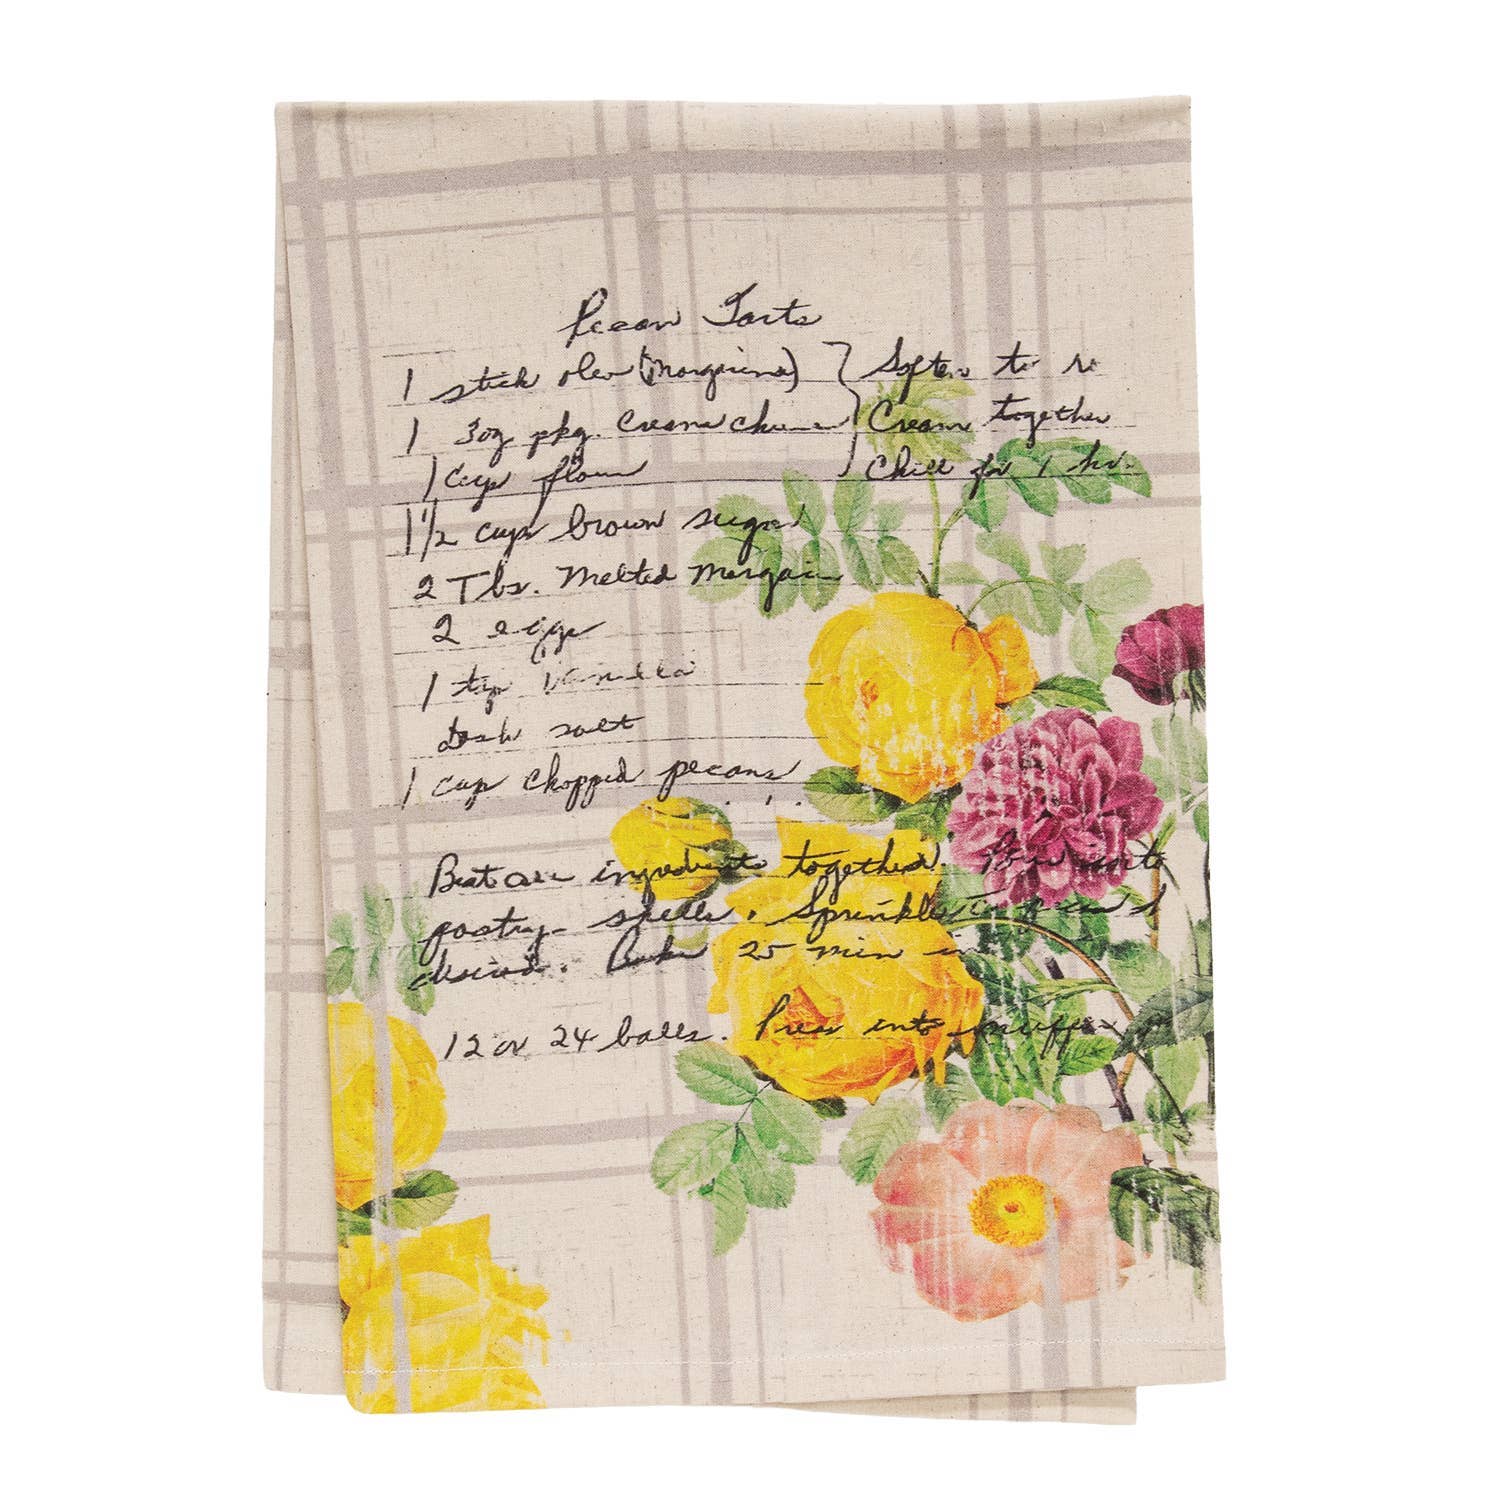 Pecan Tarts
1 stick oleo (Margarine) Soften to
1 3oz pkg. Cream cheese Cream together
1 cup flour Chill for 1 hr.
1 1/2 cup brown sugar
2 Tbs. Melted Margari
2 eggs
1 tsp Vanilla
dash salt
1 cup chopped pecans
Beat all ingredients together. Pour into
pastry shells. Sprinkle
desired. Bake 25 min in
12 or 24 balls. Press into muffin